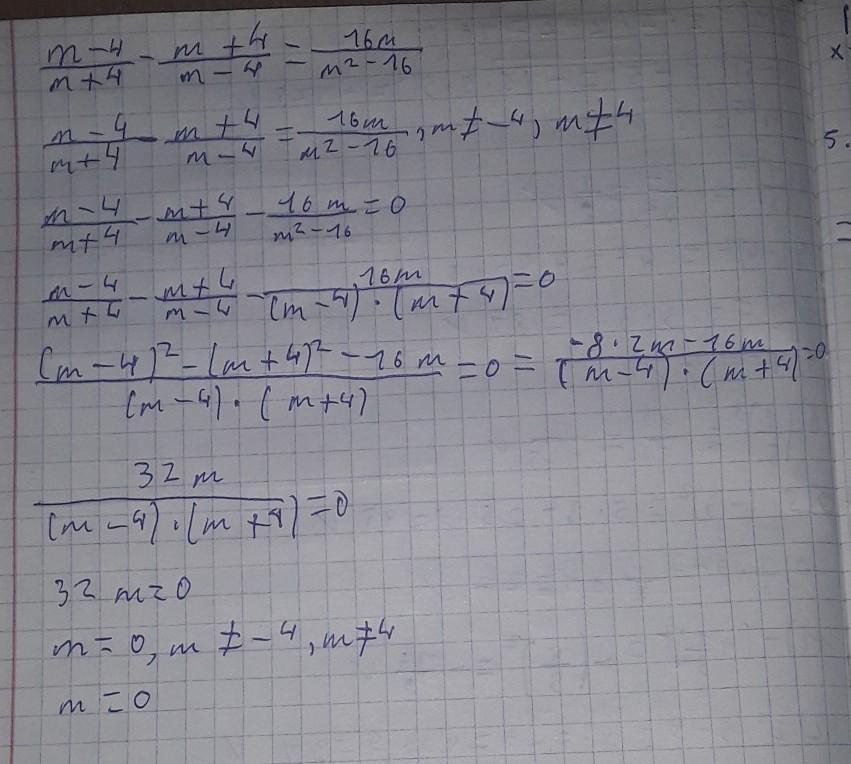 (m-4)/(m+4) - (m+4)/(m-4) = 16m/(m²-16)
(m-4)/(m+4) - (m+4)/(m-4) = 16m/(m²-16), m≠-4, m≠4
(m-4)/(m+4) - (m+4)/(m-4) - 16m/(m²-16) = 0
(m-4)/(m+4) - (m+4)/(m-4) - 16m/((m-4)·(m+4)) = 0
((m-4)²-(m+4)²-16m)/((m-4)·(m+4)) = 0 = (-8·2m-16m)/((m-4)·(m+4)) = 0
32m/((m-4)·(m+4)) = 0
32m=0
m=0, m≠-4, m≠4
m=0
x
5.
=